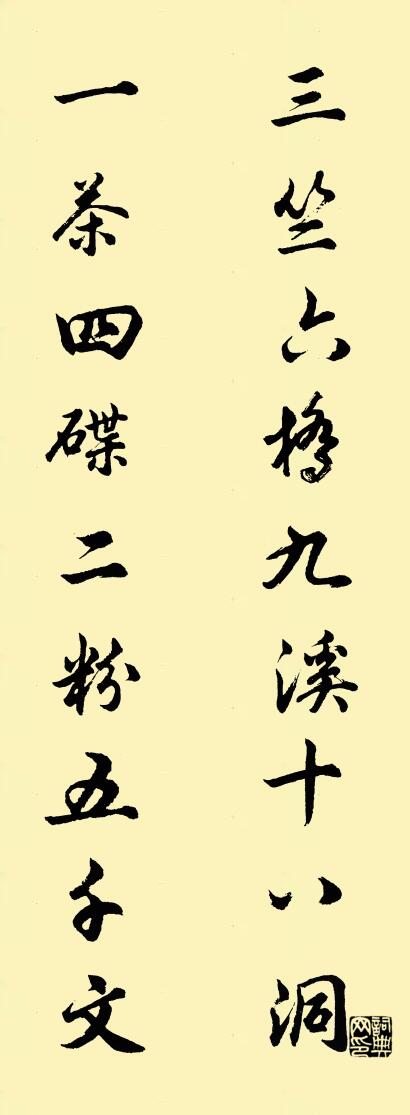 三竺六橋九溪十八洞
一茶四碟二粉五千文
詞典
网印